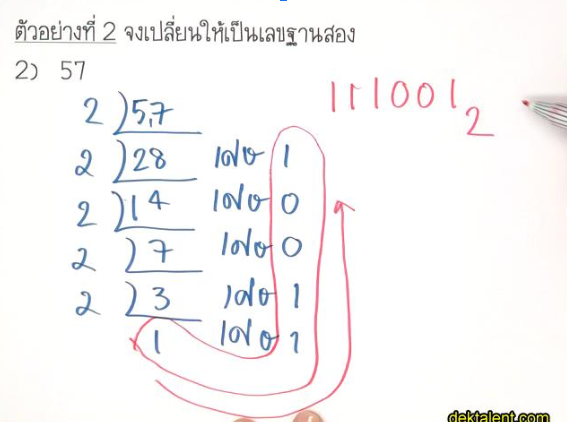 ตัวอย่างที่ 2 จงเปลี่ยนให้เป็นเลขฐานสอง
2) 57
111001₂
2 ) 57
2 ) 28 เศษ 1
2 ) 14 เศษ 0
2 ) 7 เศษ 0
2 ) 3 เศษ 1
1 เศษ 1
dektalent.com